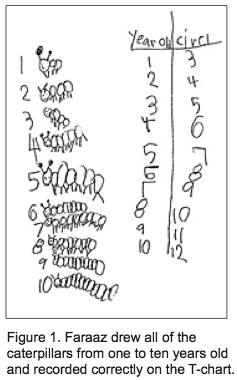 year old circl
1 1 3
2 2 4
3 3 5
4 4 6
5 5 7
6 6 8
7 7 9
8 8 10
9 9 11
10 10 12
Figure 1. Faraaz drew all of the
caterpillars from one to ten years old
and recorded correctly on the T-chart.